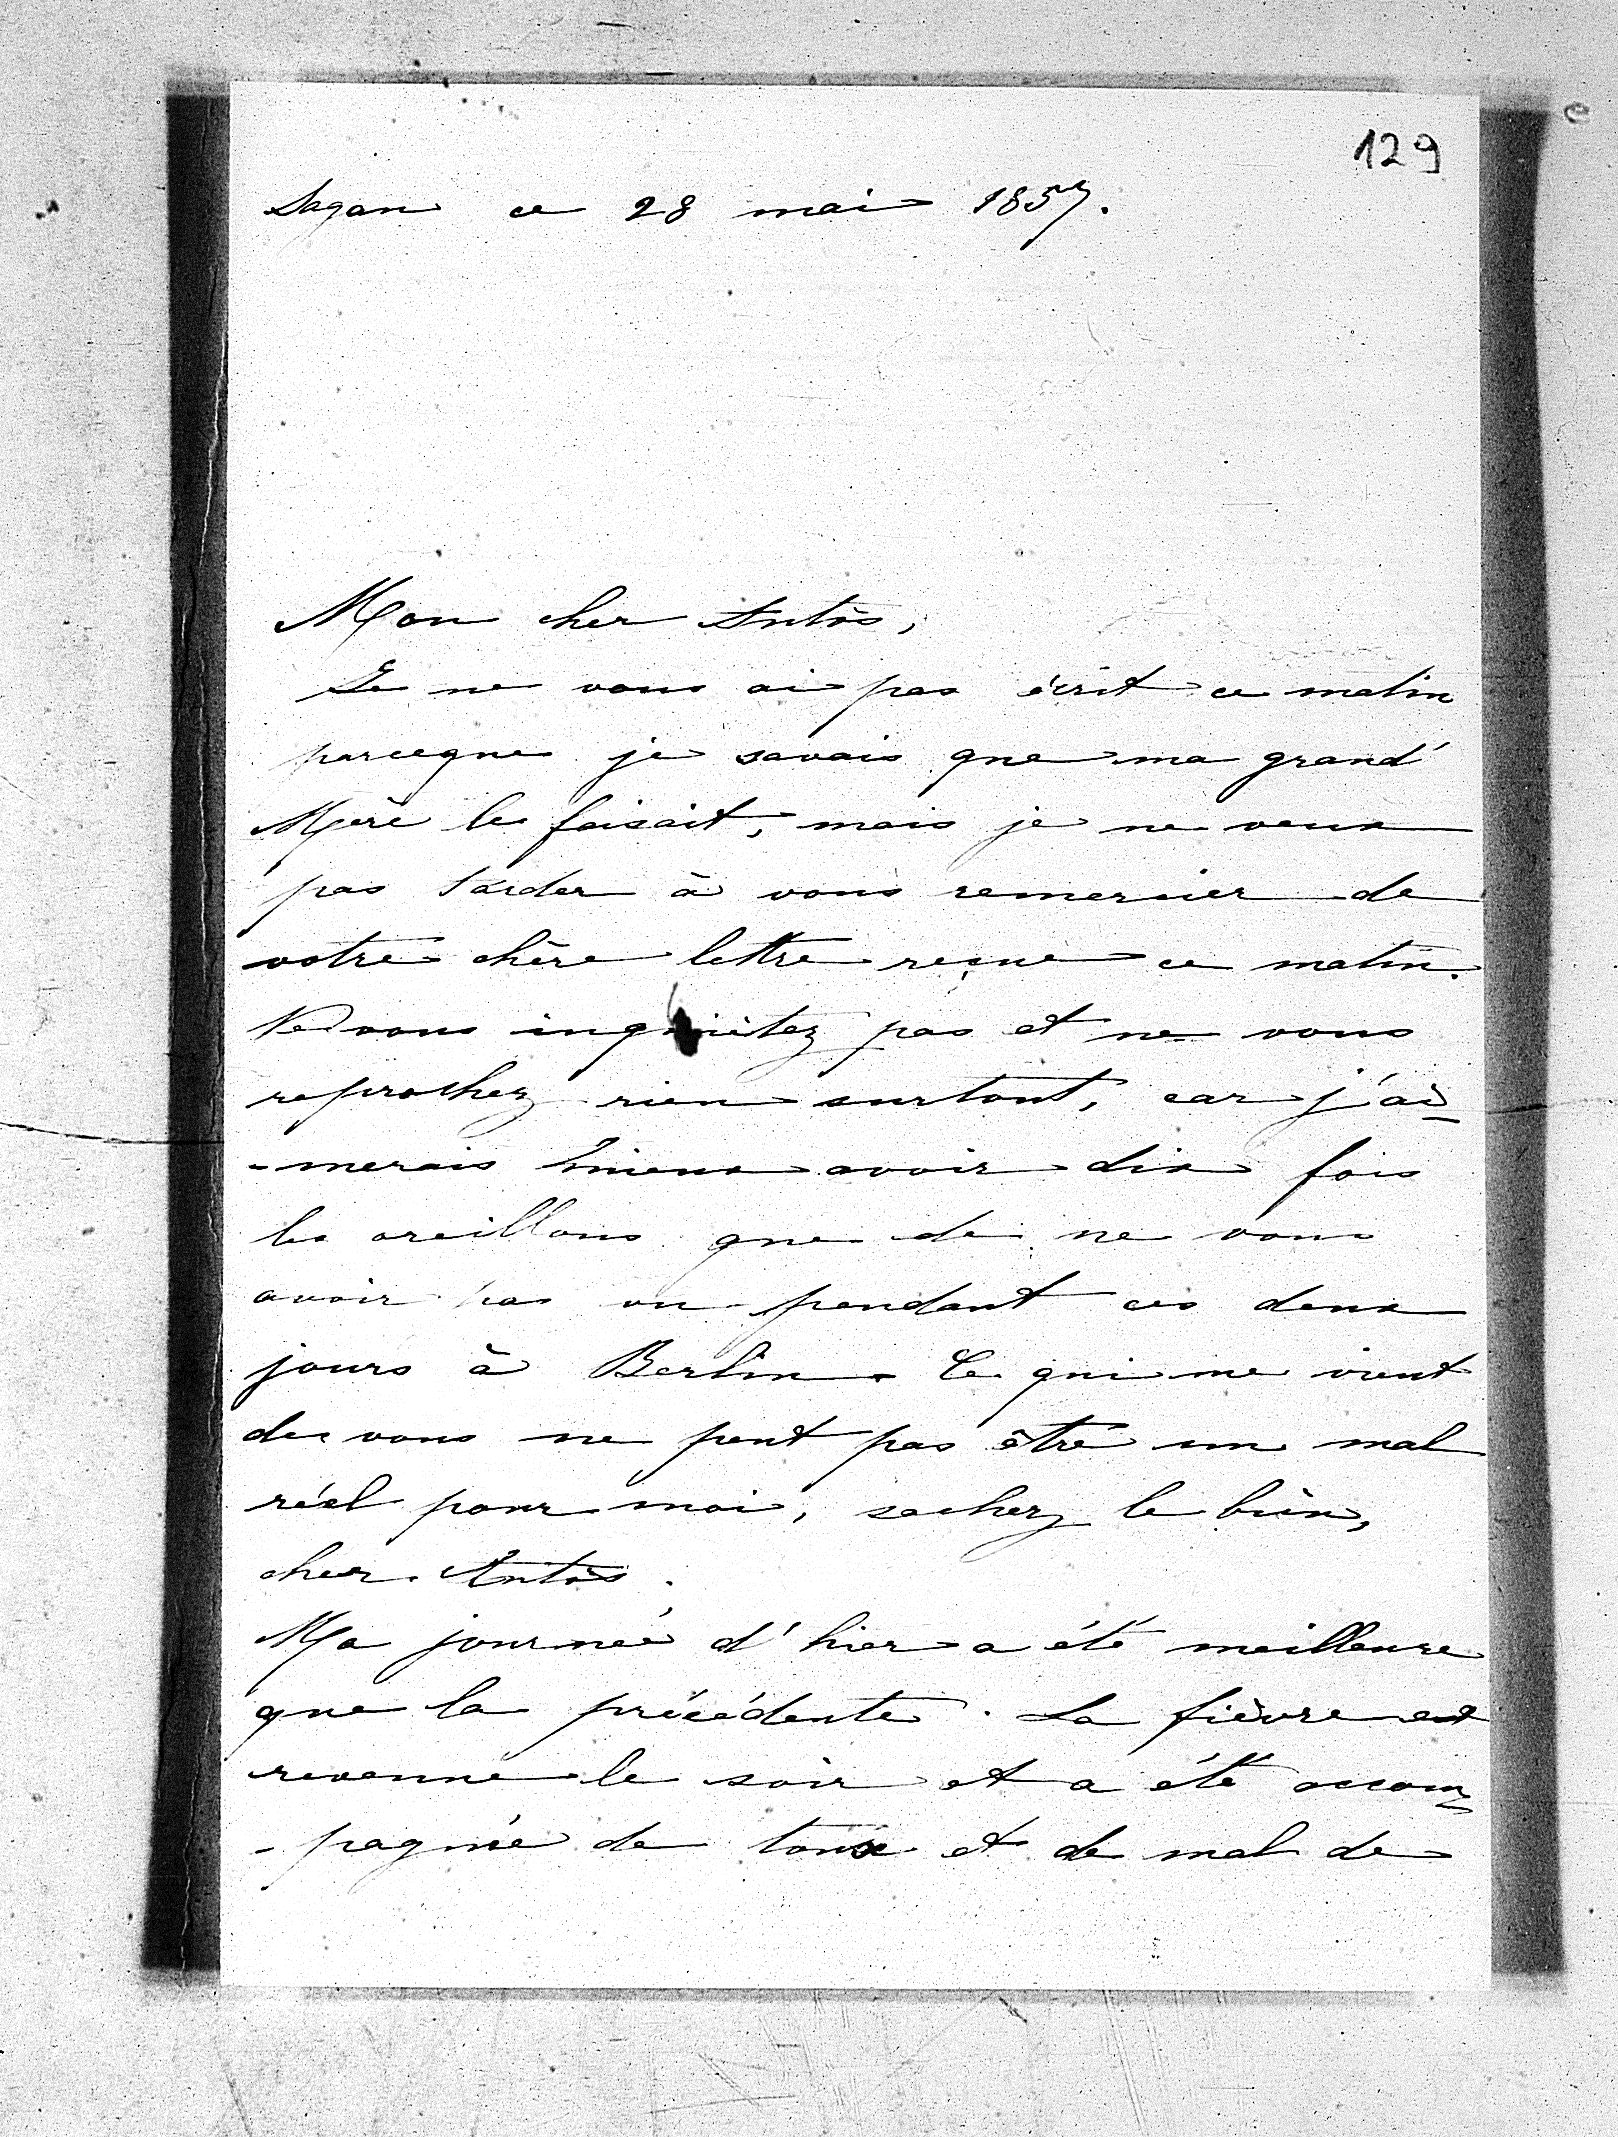 129
Sagan ce 28 mai 1857.
Mon cher Antôs,
Je ne vous ai pas écrit ce matin
parceque je savais que ma grand'
Mère le faisait, mais je ne veux
pas tarder à vous remercier de
votre chère lettre reçue ce matin.
Ne vous inquiétez pas et ne vous
reprochez rien surtout, car j'ai-
-merais mieux avoir dix fois
les oreillons que de ne vous
avoir pas vu pendant ces deux
jours à Berlin. Ce qui me vient
de vous ne peut pas être un mal
réel pour moi, sachez le bien,
cher Antôs.
Ma journée d'hier a été meilleure
que la précédente. La fièvre est
revenue le soir et a été accom-
-pagnée de toux et de mal de